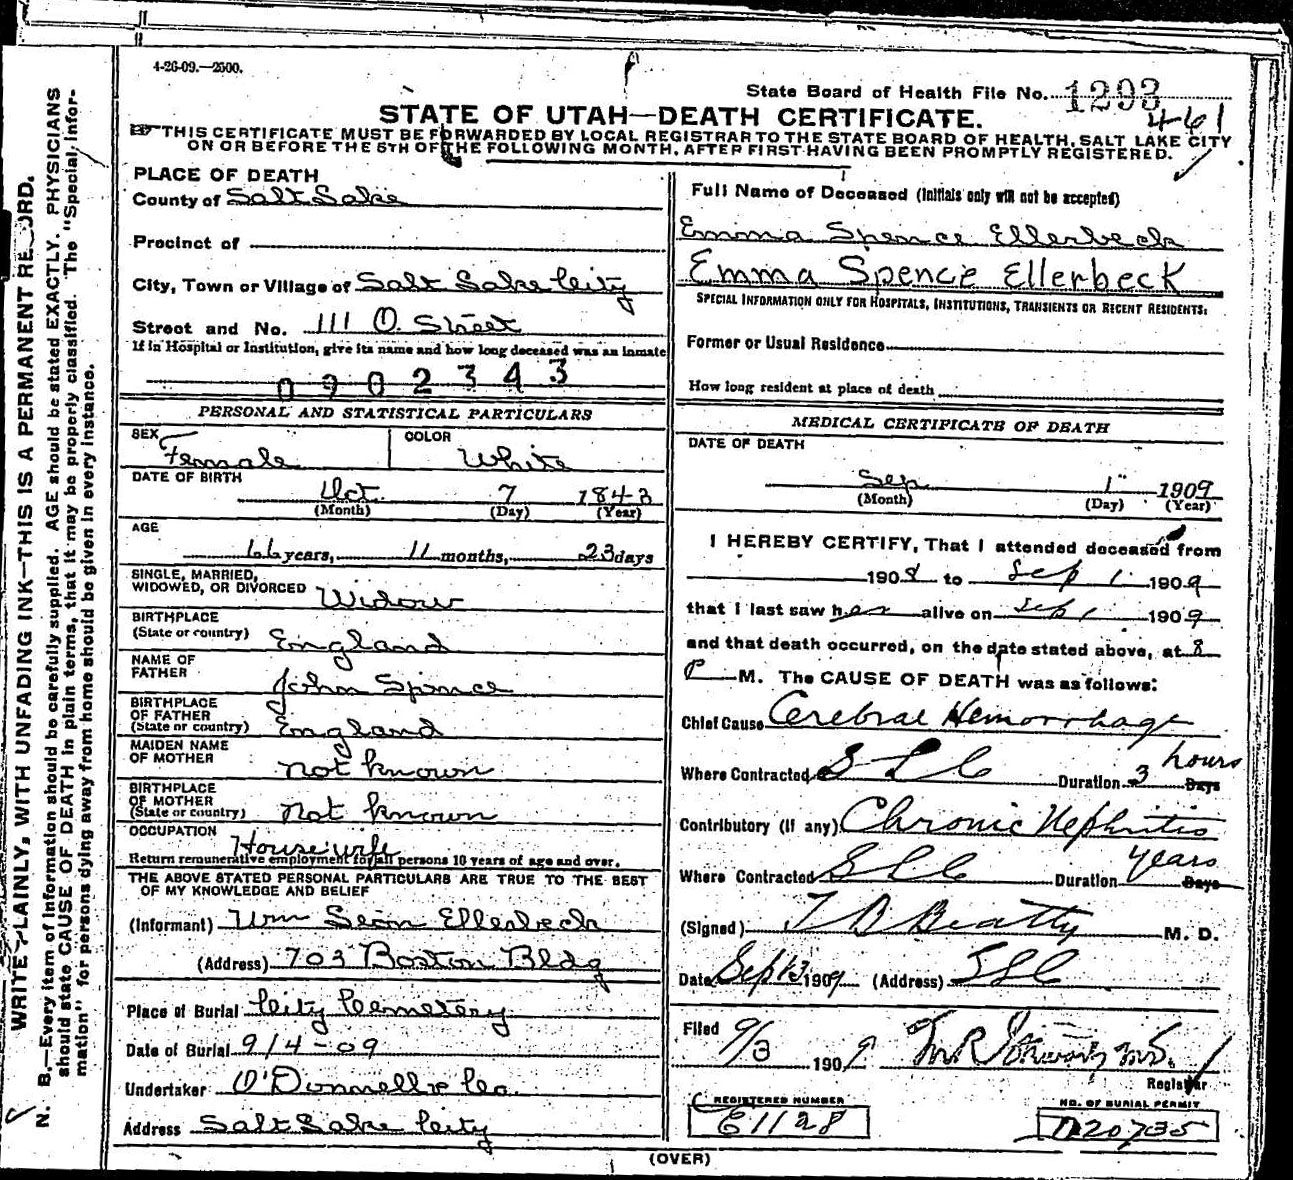 4-26-09.—2500.
State Board of Health File No. 1293
461
STATE OF UTAH—DEATH CERTIFICATE.
THIS CERTIFICATE MUST BE FORWARDED BY LOCAL REGISTRAR TO THE STATE BOARD OF HEALTH, SALT LAKE CITY
ON OR BEFORE THE 5TH OF THE FOLLOWING MONTH, AFTER FIRST HAVING BEEN PROMPTLY REGISTERED.
WRITE PLAINLY, WITH UNFADING INK—THIS IS A PERMANENT RECORD.
N. B.—Every item of information should be carefully supplied. AGE should be stated EXACTLY. PHYSICIANS
should state CAUSE OF DEATH in plain terms, that it may be properly classified. The "Special Infor-
mation" for persons dying away from home should be given in every instance.
PLACE OF DEATH
County of Salt Lake
Precinct of
City, Town or Village of Salt Lake City
Street and No. 111 O. Street
If in Hospital or Institution, give its name and how long deceased was an inmate
0902343
PERSONAL AND STATISTICAL PARTICULARS
SEX Female
COLOR White
DATE OF BIRTH
Oct. 7 1843
(Month) (Day) (Year)
AGE
66 years, 11 months, 23 days
SINGLE, MARRIED,
WIDOWED, OR DIVORCED Widow
BIRTHPLACE
(State or country) England
NAME OF
FATHER John Spence
BIRTHPLACE
OF FATHER
(State or country) England
MAIDEN NAME
OF MOTHER not known
BIRTHPLACE
OF MOTHER
(State or country) not known
OCCUPATION Housewife
Return remunerative employment for all persons 10 years of age and over.
THE ABOVE STATED PERSONAL PARTICULARS ARE TRUE TO THE BEST
OF MY KNOWLEDGE AND BELIEF
(Informant) Wm Ellerbeck
(Address) 703 Boston Bldg
Place of Burial City Cemetery
Date of Burial 9/4-09
Undertaker O'Donnell & Co.
Address Salt Lake City
Full Name of Deceased (Initials only will not be accepted)
Emma Spence Ellerbeck
Emma Spence Ellerbeck
SPECIAL INFORMATION ONLY FOR HOSPITALS, INSTITUTIONS, TRANSIENTS OR RECENT RESIDENTS:
Former or Usual Residence
How long resident at place of death
MEDICAL CERTIFICATE OF DEATH
DATE OF DEATH
Sep 1" 1909
(Month) (Day) (Year)
I HEREBY CERTIFY, That I attended deceased from
1908 to Sep 1 1909
that I last saw her alive on Sep 1 1909
and that death occurred, on the date stated above, at 8
P M. The CAUSE OF DEATH was as follows:
Chief Cause Cerebral Hemorrhage
Where Contracted S L C Duration 3 hours Days
Contributory (if any) Chronic Nephritis
Where Contracted S L C Duration Years Days
(Signed) T B Beatty M. D.
Date Sep 13 1909 (Address) S L C
Filed 9/3 1909
Registrar
REGISTERED NUMBER
E1128
NO. OF BURIAL PERMIT
D20735
(OVER)